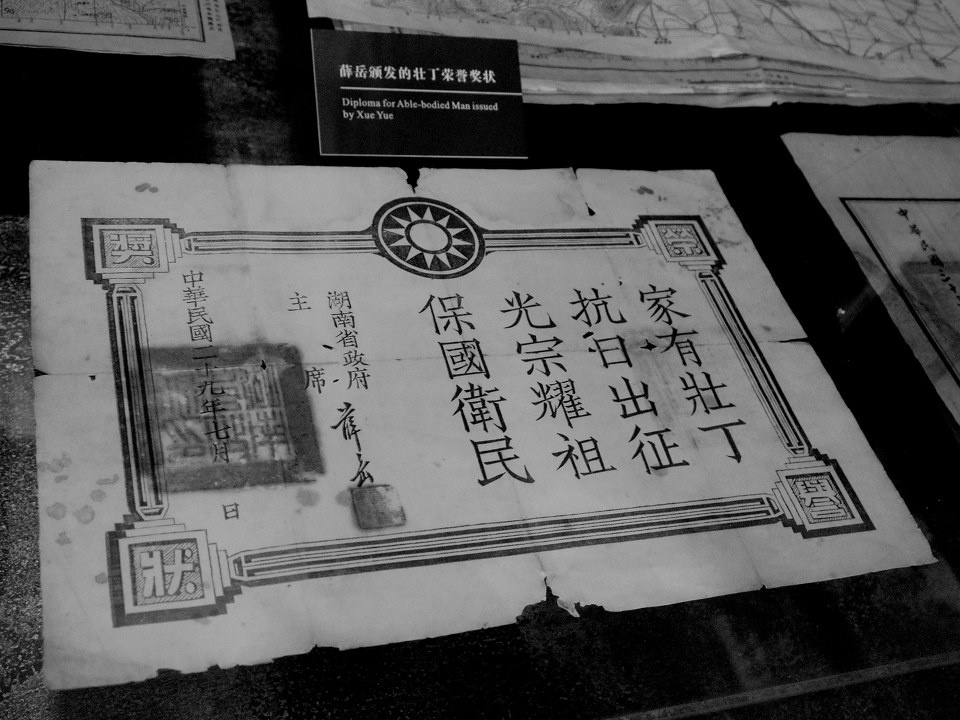 薛岳颁发的壮丁荣誉奖状
Diploma for Able-bodied Man issued
by Xue Yue
榮
譽
獎
狀
家有壯丁
抗日出征
光宗耀祖
保國衛民
湖南省政府
主席
薛岳
中華民國二十九年七月
日
中華民國二十